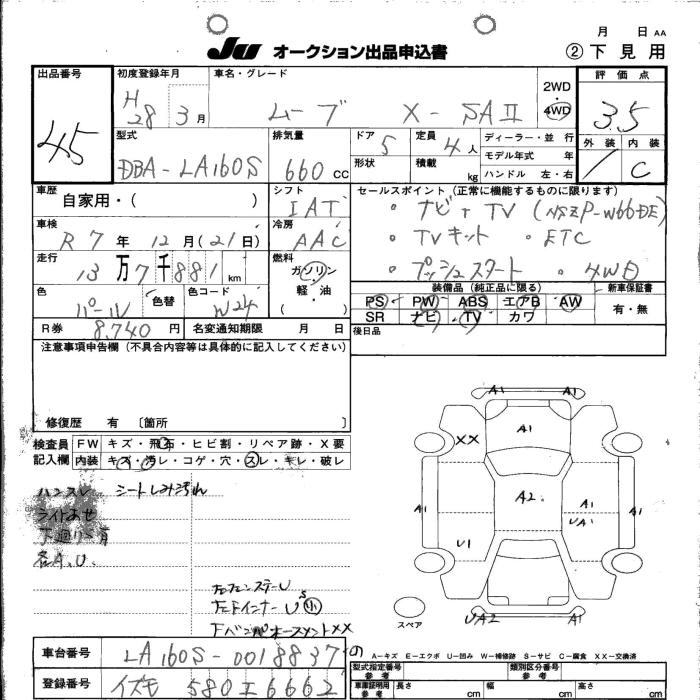 月 日 AA
JU オークション出品申込書
② 下見用
出品番号 45
初度登録年月 H28 3月
車名・グレード ムーブ X-SAⅡ
2WD・4WD
評価点 3.5
外装 / 内装 C
型式 DBA-LA160S
排気量 660 CC
ドア 5
形状
定員 4人
積載 kg
ディーラー・並 行
モデル年式 年
ハンドル 左・右
車歴 自家用・( )
シフト IAT
セールスポイント(正常に機能するものに限ります)
・ナビ+TV (NSZP-W66DE)
・TVキット ・ETC
・プッシュスタート ・4WD
車検 R7年 12月(21日)
冷房 AAC
走行 13万7千881km
燃料 ガソリン 軽・油 ( )
色 パール 色替
色コード W24
装備品(純正品に限る) 新車保証書
PS PW ABS エアB AW 有・無
SR ナビ・TV カワ
R券 8,740円
名変通知期限 月 日
後日品
注意事項申告欄(不具合内容等は具体的に記入してください)
修復歴 有 〔箇所 〕
検査員記入欄
FW キズ・飛石・ヒビ割・リペア跡・X要
内装 キズ・汚レ・コゲ・穴・スレ・キレ・破レ
ハンスレ シートしみ汚れ
ライトあせ
下廻り 有
各A.U.
A1 A1
A1
XX
A2
A1 A1 A1
UA1
U1
スペア
UA2 A1
A-キズ E-エクボ U-凹み W-補修跡 S-サビ C-腐食 XX-交換済
車台番号 LA160S-0018837
登録番号 イズモ 580 エ 6662
型式指定番号 参考
類別区分番号
車庫証明用 参考
長さ cm 幅 cm 高さ cm